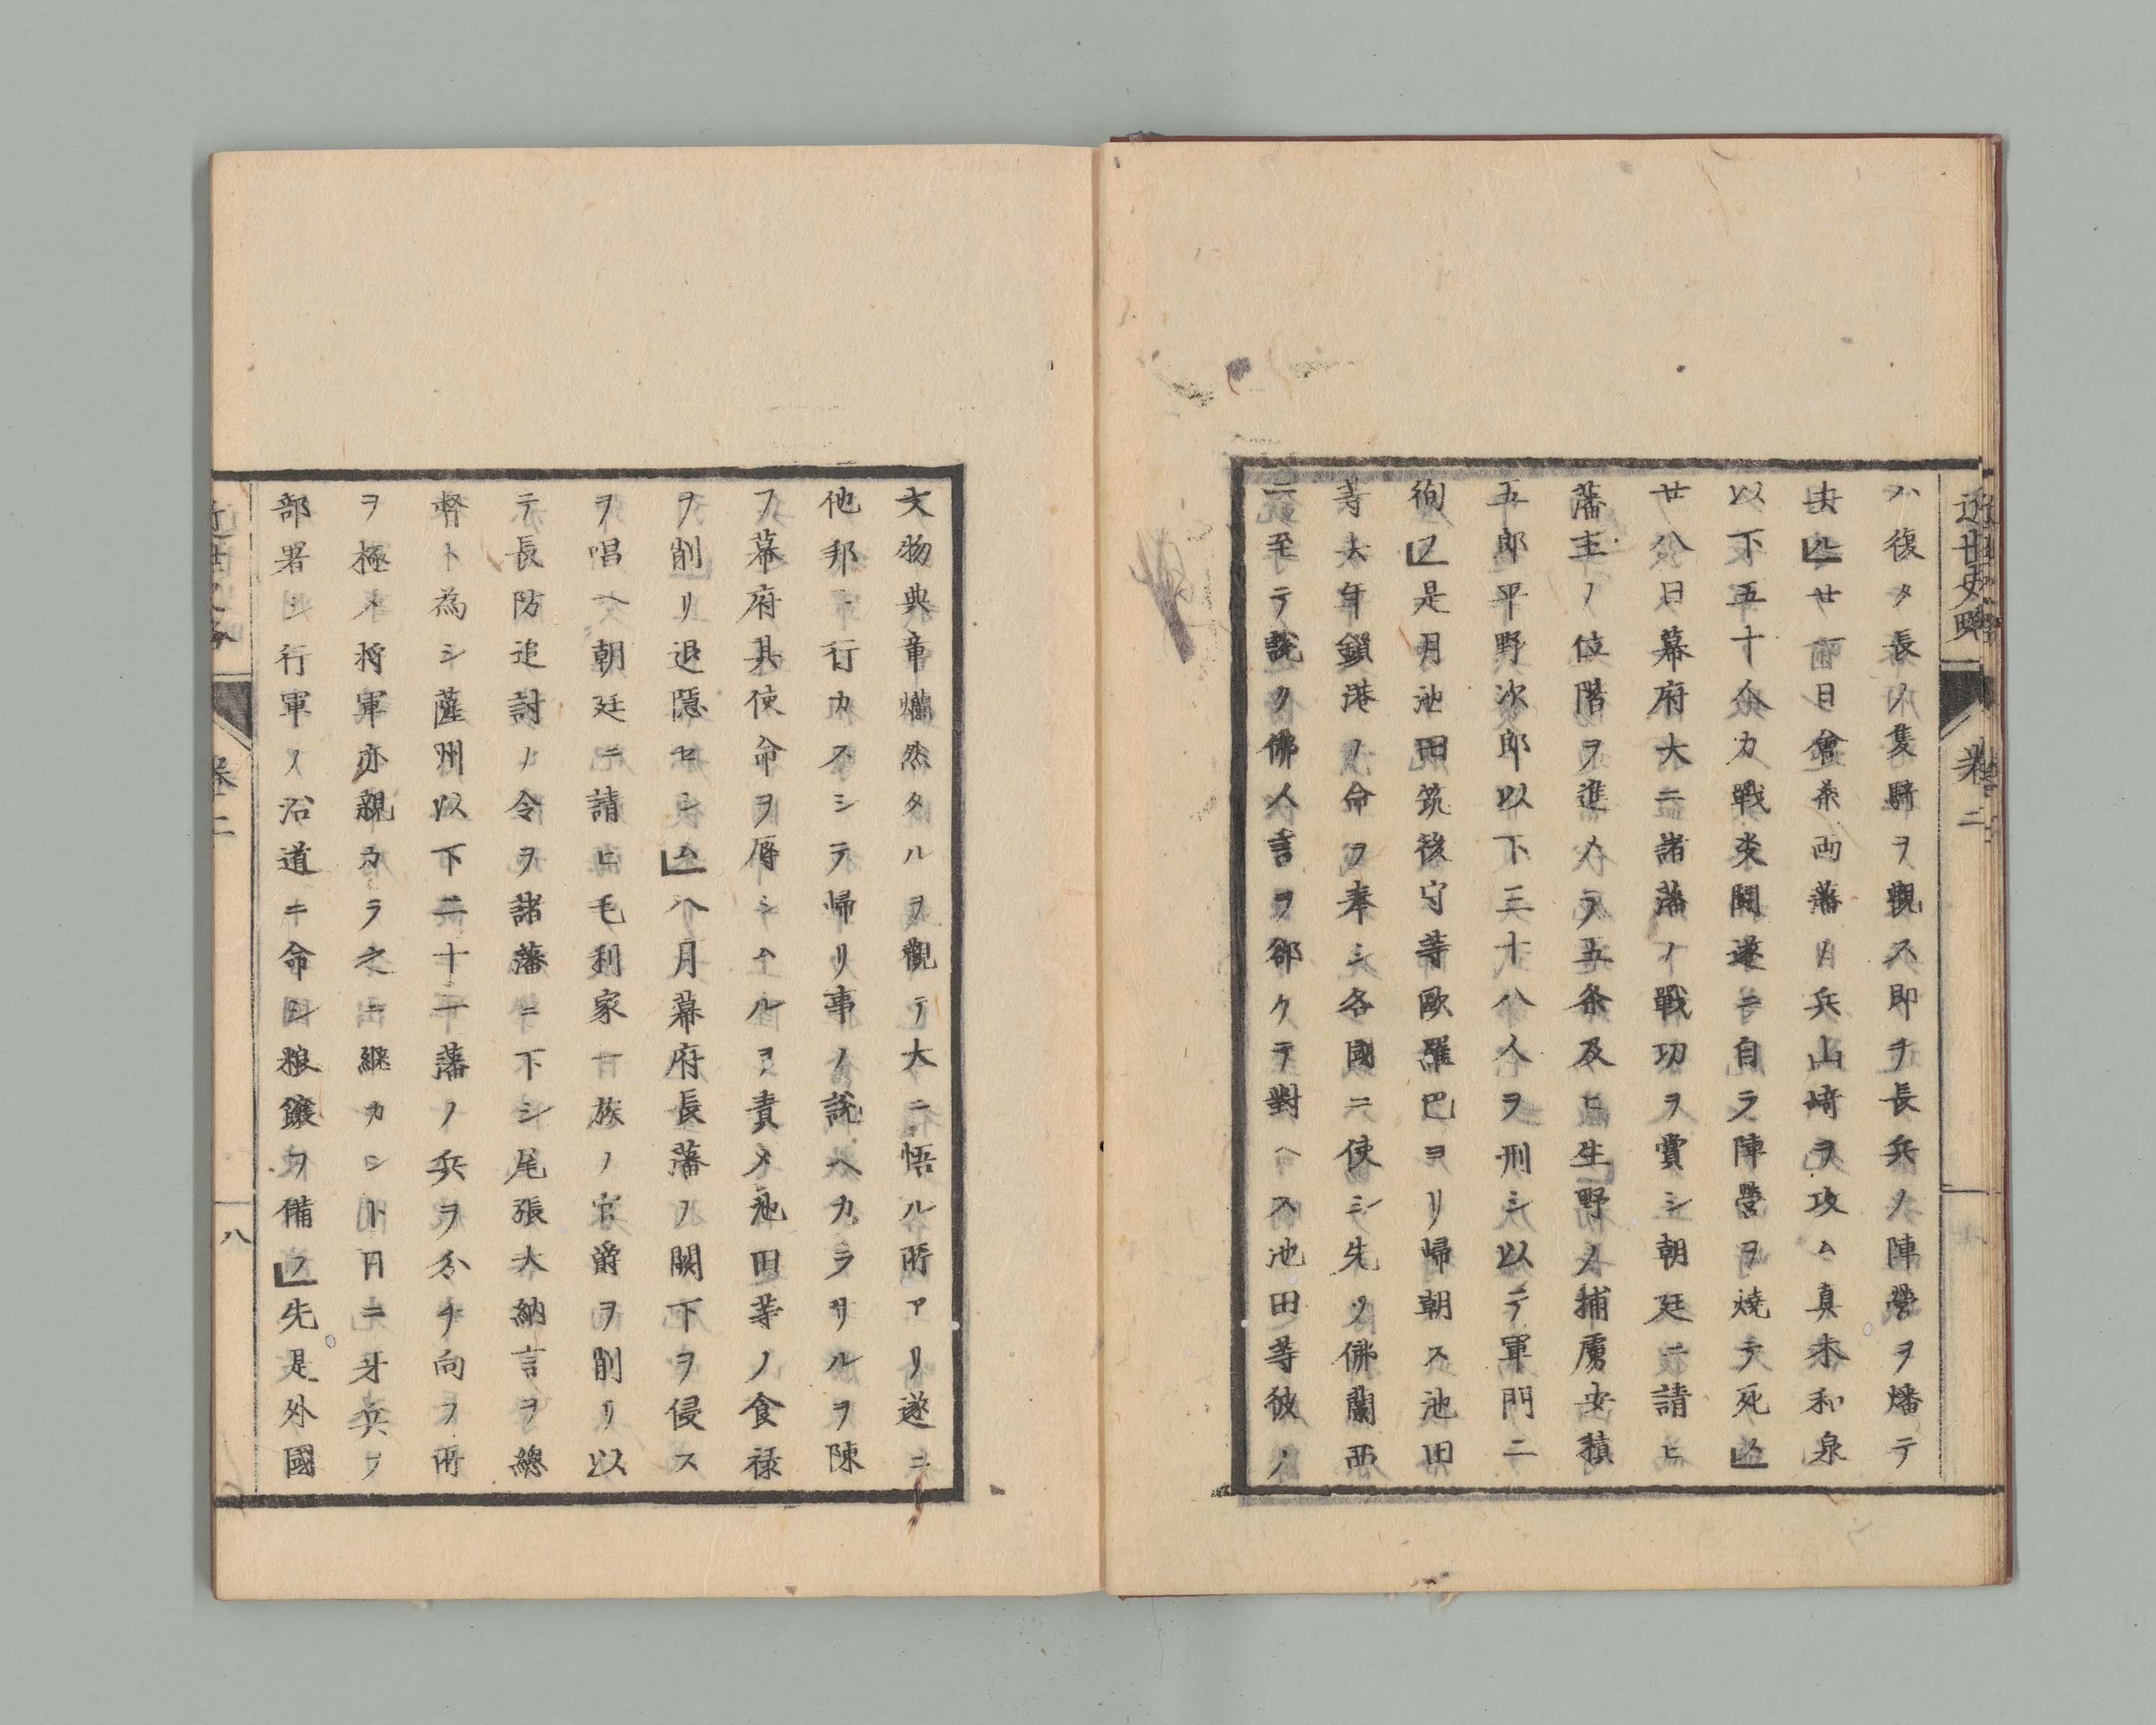 近世史略
卷二
ハ復タ長ノ隻騎ヲ觀ス即チ長兵ノ陣營ヲ燔テ
去ル廿一日會桑両藩ノ兵山﨑ヲ攻ム真木和泉
以下五十余人力戰突鬪遂ニ自ラ陣營ヲ燒テ死ス
廿八日幕府大ニ諸藩ノ戰功ヲ賞シ朝廷ニ請ヒ
藩主ノ位階ヲ進メラル五条及ヒ生野ノ捕虜安積
五郎平野次郎以下三十八人ヲ刑シ以テ軍門ニ
徇フ是月池田筑後守等歐羅巴ヨリ帰朝ス池田
等去年鎖港ノ命ヲ奉シ各國ニ使シ先ツ佛蘭西
ニ至テ説ク佛人言ヲ郤ケテ對ヘス池田等彼ノ
文物典章爛然タルヲ觀テ大ニ悟ル所アリ遂ニ
他邦ニ行カスシテ帰リ事ノ説ヘカラサルヲ陳
フ幕府其使命ヲ辱シムルヲ責メ池田等ノ食禄
ヲ削リ退隠セシム八月幕府長藩ノ闕下ヲ侵ス
ヲ唱ヘ朝廷ニ請ヒ毛利家一族ノ官爵ヲ削リ以
テ長防追討ノ令ヲ諸藩ニ下シ尾張大納言ヲ總
督ト為シ薩州以下二十一藩ノ兵ヲ分チ向フ所
ヲ極メ将軍亦親カラ之ニ継カント日ニ牙兵ヲ
部署シ行軍ノ沿道ニ命シ粮饟ヲ備フ先是外國
近世史略
卷二
八